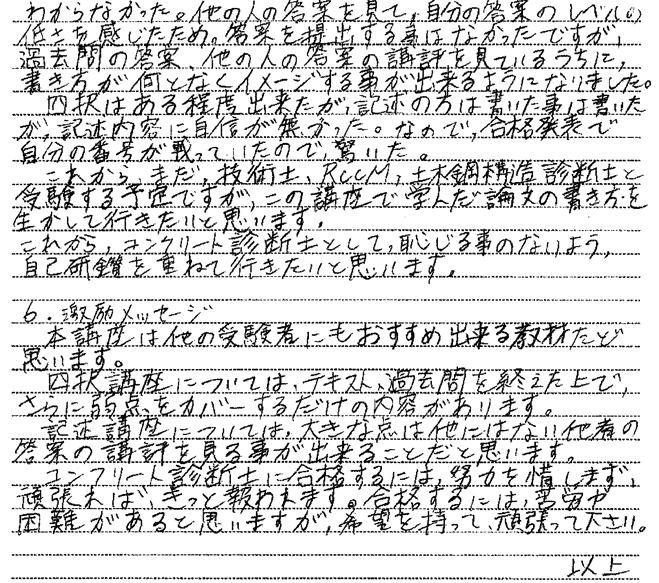 わからなかった。他の人の答案を見て、自分の答案のレベルの
低さを感じたため。答案を提出する事はなかったですが、
過去問の答案、他の人の答案の講評を見ているうちに、
書き方が何となくイメージする事が出来るようになりました。
四択はある程度出来たが、記述の方は書いた事は書いた
が、記述内容に自信が無かった。なので、合格発表で
自分の番号が載っていたので驚いた。
これから、まだ、技術士、RCCM、土木鋼構造診断士と
受験する予定ですが、この講座で学んだ論文の書き方を
生かして行きたいと思います。
これから、コンクリート診断士として、恥じる事のないよう、
自己研鑽を重ねて行きたいと思います。
6．激励メッセージ
本講座は他の受験者にもおすすめ出来る教材だと
思います。
四択講座については、テキスト、過去問を終えた上で、
さらに弱点をカバーするだけの内容があります。
記述講座については、大きな点は他にはない他者の
答案の講評を見る事が出来ることだと思います。
コンクリート診断士に合格するには、努力を惜しまず、
頑張れば、きっと報われます。合格するには、苦労や
困難があると思いますが、希望を持って、頑張って下さい。
以上